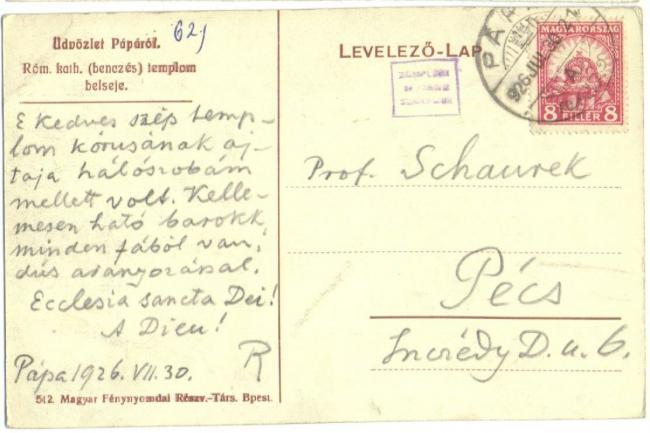 Üdvözlet Pápáról.
62)
Róm. kath. (benczés) templom
belseje.
LEVELEZŐ-LAP
PÁPA
926 JUL 30
MAGYARORSZÁG
8 FILLÉR 8
E kedves szép temp-
lom kórusának aj-
taja hálószobám
mellett volt. Kelle-
mesen ható barokk
minden fából van,
dús aranyozással.
Ecclesia sancta Dei!
A Dieu!
R
Pápa 1926. VII. 30.
Prof. Schaurek
Pécs
Incrédy D. u. 6.
512. Magyar Fénynyomdai Részv.-Társ. Bpest.